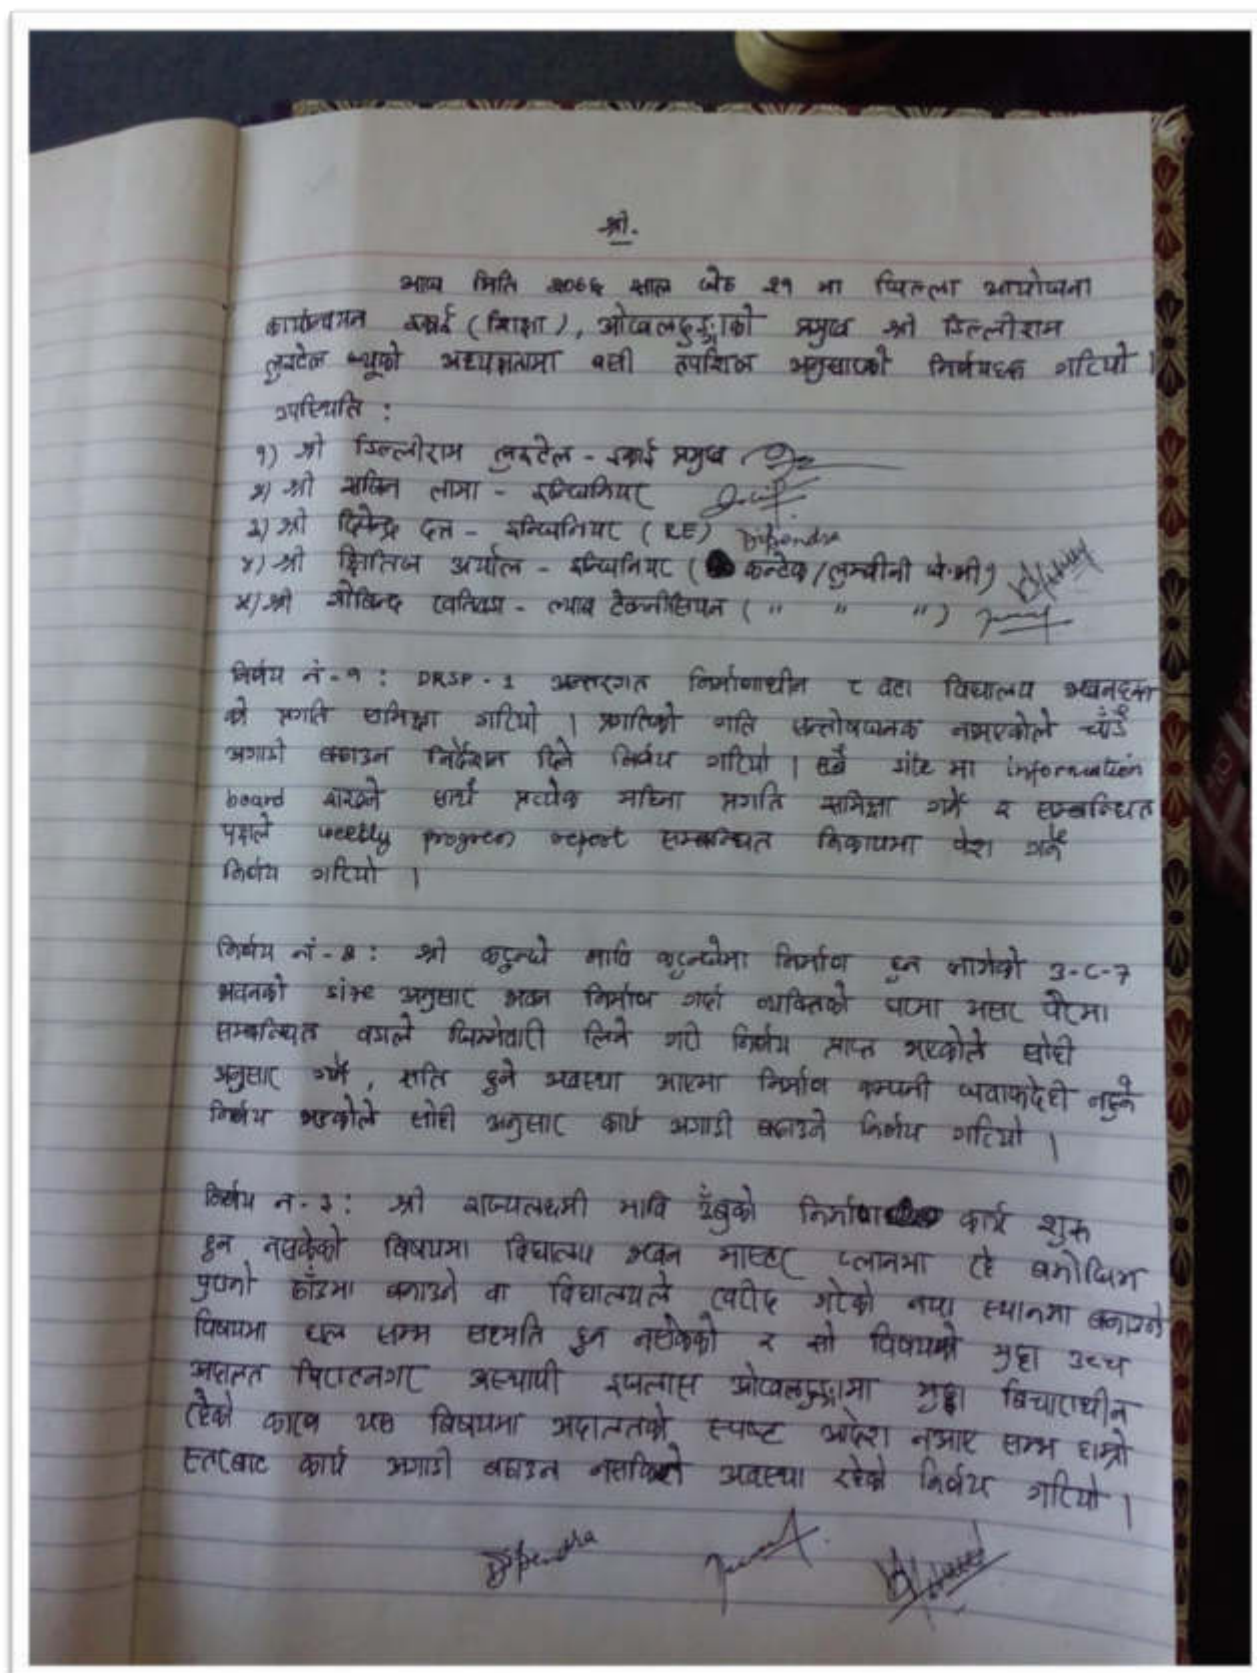 श्री.
आज मिति २०७६ साल जेठ २१ मा जिल्ला आयोजना
कार्यान्वयन इकाई (शिक्षा), ओखलढुङ्गाको प्रमुख श्री डिल्लीराम
लुइटेल ज्यूको अध्यक्षतामा बसी तपशिल अनुसारको निर्णयहरू गरियो ।
उपस्थिति :
१) श्री डिल्लीराम लुइटेल - इकाई प्रमुख
२) श्री सचिन लामा - इन्जिनियर
३) श्री दिपेन्द्र दत्त - इन्जिनियर (RE) Dipendra
४) श्री क्षितिज अर्याल - इन्जिनियर ( कन्टेक/लुम्बीनी जे.भी)
५) श्री गोबिन्द खतिवडा - ल्याब टेक्नीसियन ( " " ")
निर्णय नं - १ : DRSP - 1 अन्तरगत निर्माणाधीन ८ वटा विद्यालय भवनहरू
को प्रगति समिक्षा गरियो । प्रगतिको गति सन्तोषजनक नभएकोले चाँडै
अगाडी बढाउन निर्देशन दिने निर्णय गरियो । सबै site मा information
board राख्ने साथै प्रत्येक महिना प्रगति समिक्षा गर्ने र सम्बन्धित
पक्षले weekly progress report सम्बन्धित निकायमा पेश गर्ने
निर्णय गरियो ।
निर्णय नं - २ : श्री कटुन्जे मावि कटुन्जेमा निर्माण हुन लागेको 3-C-7
भवनको size अनुसार भवन निर्माण गर्दा व्यक्तिको घरमा असर परेमा
सम्बन्धित वडाले जिम्मेवारी लिने गरी निर्णय प्राप्त भएकोले सोही
अनुसार गर्ने, क्षति हुने अवस्था आएमा निर्माण कम्पनी जवाफदेही नहुने
निर्णय भएकोले सोही अनुसार कार्य अगाडी बढाउने निर्णय गरियो ।
निर्णय नं - ३ : श्री राज्यलक्ष्मी मावि को निर्माण कार्य शुरू
हुन नसकेको विषयमा विद्यालय भवन मास्टर प्लानमा रहे बमोजिम
पुरानो ठाँउमा बनाउने वा विद्यालयले खरीद गरेको नयाँ स्थानमा बनाउने
विषयमा हाल सम्म सहमति हुन नसकेको र सो विषयको मुद्दा उच्च
अदालत विराटनगर अस्थायी इजलास ओखलढुङ्गामा मुद्दा बिचाराधीन
रहेको कारण यस बिषयमा अदालतको स्पष्ट आदेश नआए सम्म हाम्रो
स्तरबाट कार्य अगाडी बढाउन नसकिने अवस्था रहेको निर्णय गरियो ।
Dipendra